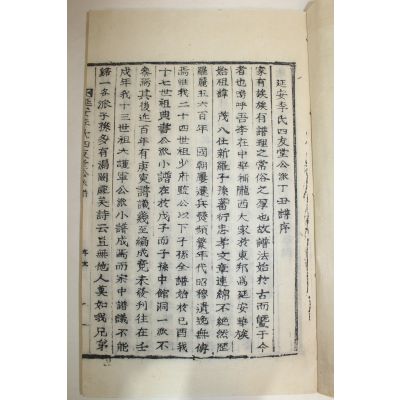 延安李氏四友堂公派丁丑譜序
家有族族有譜理之常俗之厚也故譜法始於古而曁于今
者也嗚呼吾李在中華稱隴西大家於東邦爲延安華族
始祖諱茂八仕新羅子孫蕃衍忠孝文章連綿不絶然歷
羅麗五六百年國朝屢遷兵發頻繁年代昭穆遺逸無傳
焉惟我二十世祖少府監公以下子孫全譜始於己酉我
十七世祖典書公派小譜在於戊子而子孫中館洞一派不
參焉其後近百年有東譜議幾至編成竟未發刊往在壬
戌年我十三世祖大護軍公派小譜成焉而宗中譜議不能
歸一各派子孫多有湯闕處矣詩云豈無他人莫如我兄弟
延安李氏四友堂公派譜